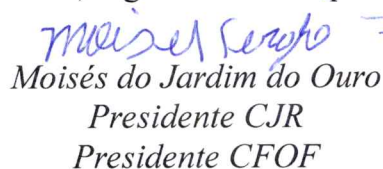 Moisés Sergio
Moisés do Jardim do Ouro
Presidente CJR
Presidente CFOF